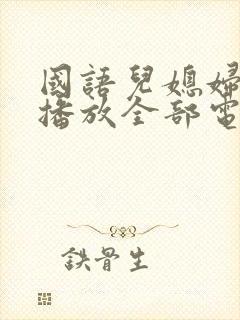 國語兒媳婦
播放全部電
鉄骨生